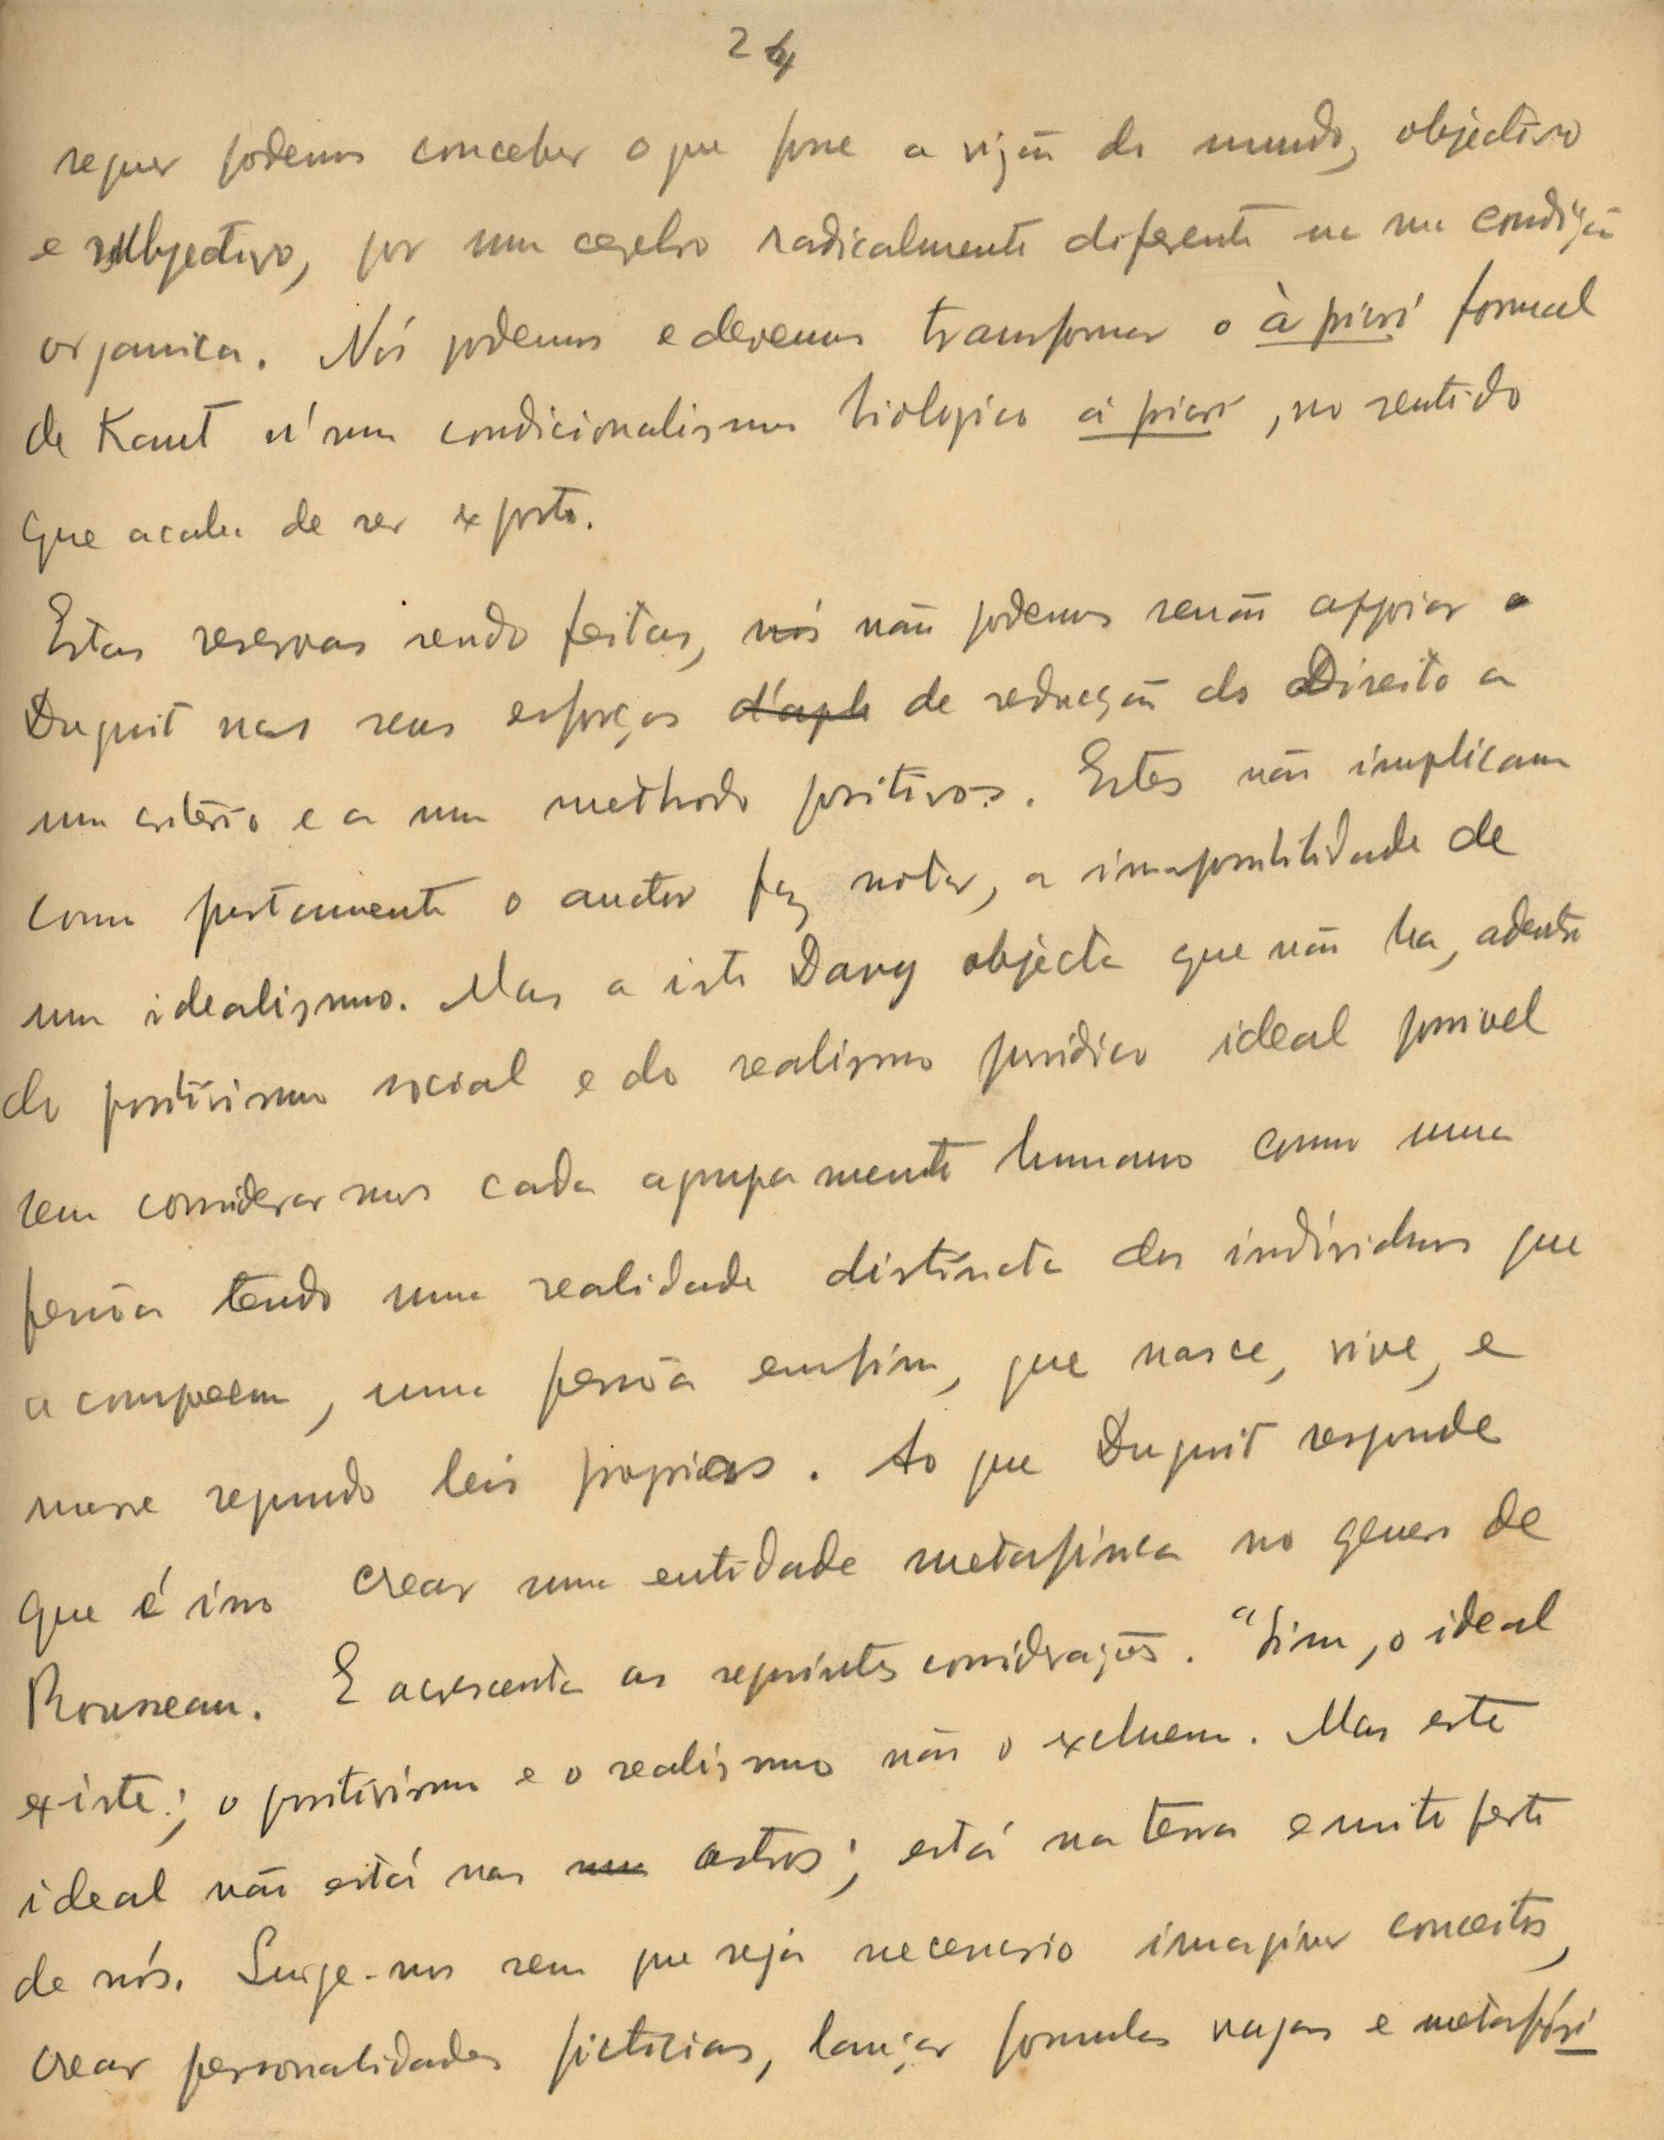 24
sequer podemos conceber o que fosse a visão do mundo, objectivo
e subjectivo, por um cerebro radicalmente diferente na sua condição
organica. Nós podemos e devemos transformar o à priori formal
de Kant n'um condicionalismo biologico à priori, no sentido
que acaba de ser exposto.
Estas reservas sendo feitas, nós não podemos senão appoiar a
Duguit nos seus esforços de reducção do Direito a
um critério e a um methodo positivos. Estes não implicam
como justamente o auctor faz notar, a impossibilidade de
um idealismo. Mas a isto Davy objecta que não ha, adentro
do positivismo social e do realismo juridico ideal possivel
sem considerarmos cada agrupamento humano como uma
pessôa tendo uma realidade distincta dos individuos que
a compoem, uma pessôa emfim, que nasce, vive, e
morre segundo leis proprias. Ao que Duguit responde
que é isso crear uma entidade metafisica no genero de
Rousseau. E acrescenta as seguintes considerações. "Sim, o ideal
existe; o positivismo e o realismo não o excluem. Mas este
ideal não está nos astros; está na terra e muito perto
de nós. Surge-nos sem que seja necessario imaginar conceitos,
crear personalidades ficticias, lançar formulas vagas e metafísi